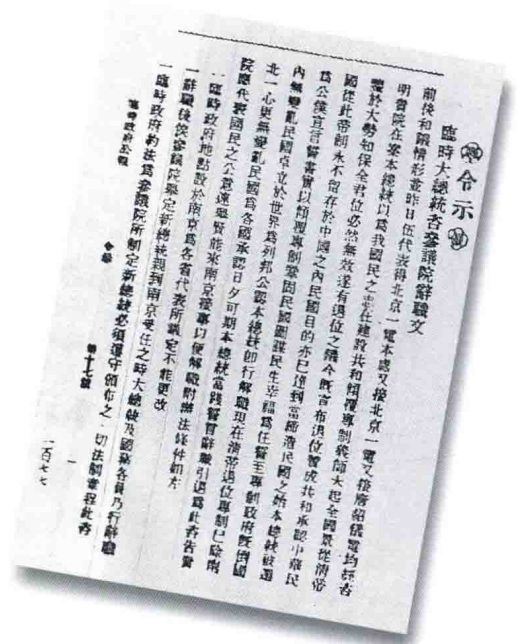 令示
臨時大總統咨參議院辭職文
前後和議情形並昨日伍代表得北京一電本處又接北京一電又接唐紹儀電均經咨
明貴院在案本總統以爲我國民之志在建設共和傾覆專制義師大起全國景從清帝
鑒於大勢知保全君位必然無效遂有退位之議今既宣布退位贊成共和承認中華民
國從此帝制永不留存於中國之內民國目的亦已達到當締造民國之始本總統被選
爲公僕宣言誓書實以傾覆專制鞏固民國圖謀民生幸福爲任誓至專制政府既倒國
內無變亂民國卓立於世界爲列邦公認本總統即行解職現在清帝退位專制已除南
北一心更無變亂民國爲各國承認旦夕可期本總統當踐誓言辭職引退爲此咨告貴
院應代表國民之公意速舉賢能來南京接事以便解職附辦法條件如左
一臨時政府地點設於南京爲各省代表所議定不能更改
一辭職後俟參議院舉定新總統親到南京受任之時大總統及國務各員乃行辭職
一臨時政府約法爲參議院所制定新總統必須遵守頒布之一切法制章程此咨
臨時政府公報
令示
第十七號
一
一百七七